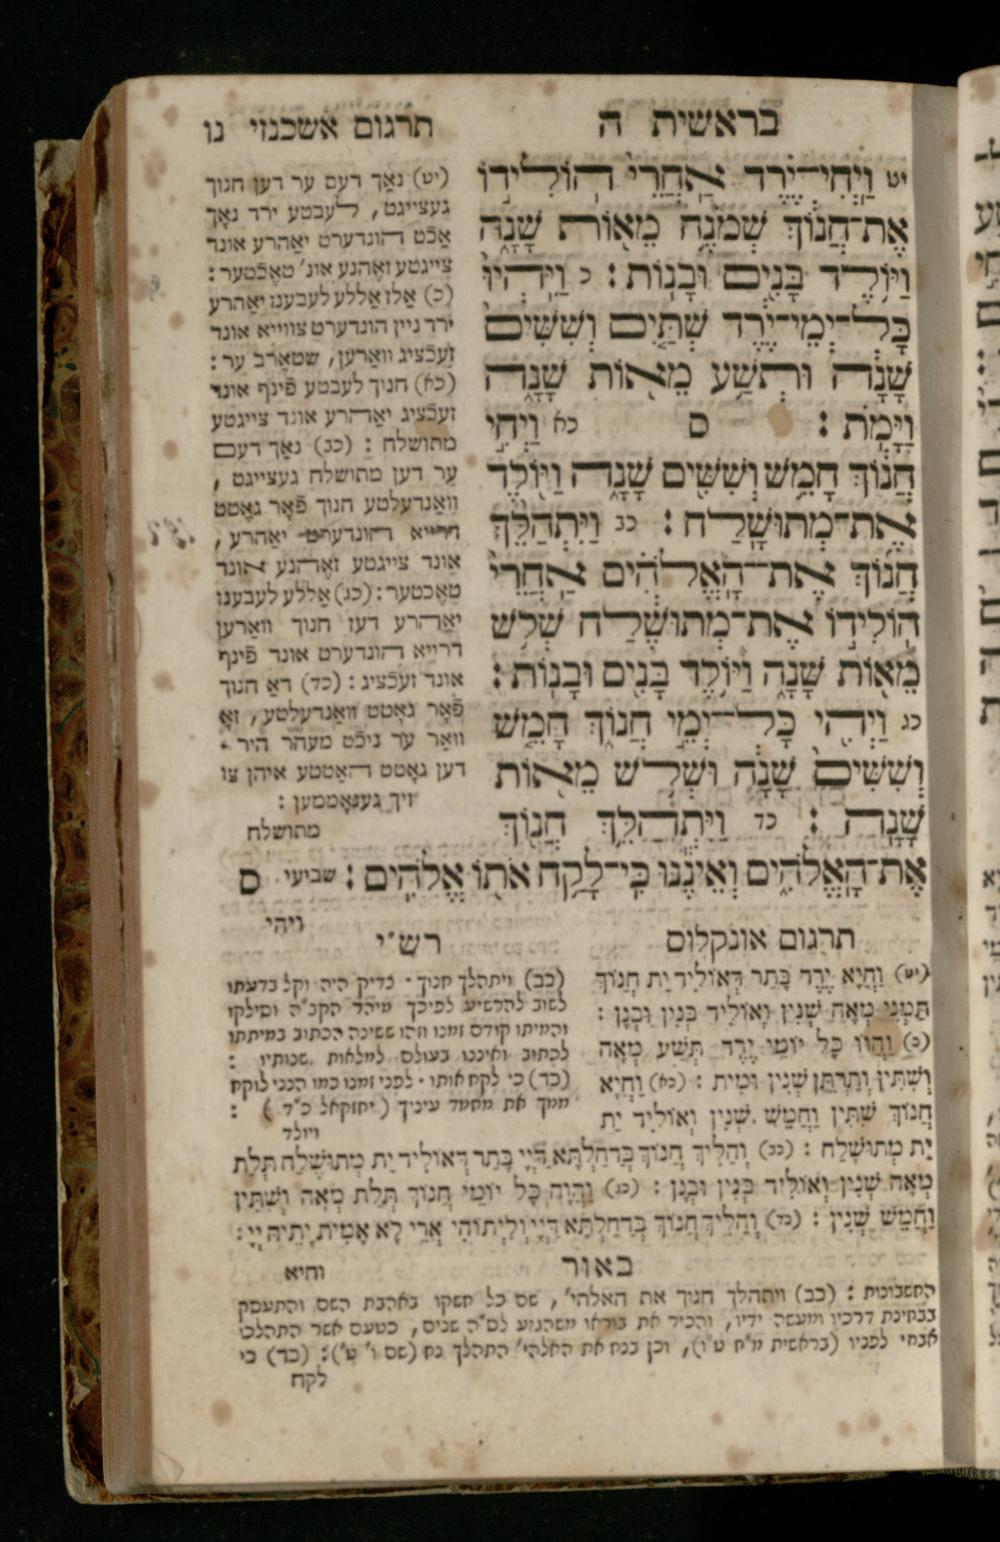 בראשית ה
תרגום אשכנזי נו
יט וַיְחִי־יֶ֗רֶד אַחֲרֵי֙ הוֹלִיד֣וֹ
אֶת־חֲנ֔וֹךְ שְׁמֹנֶ֥ה מֵא֖וֹת שָׁנָ֑ה
וַיּ֥וֹלֶד בָּנִ֖ים וּבָנֽוֹת׃ כ וַיִּֽהְיוּ֙
כָּל־יְמֵי־יֶ֔רֶד שְׁתַּ֤יִם וְשִׁשִּׁים֙
שָׁנָ֔ה וּתְשַׁ֥ע מֵא֖וֹת שָׁנָ֑ה
וַיָּמֹֽת׃ ס כא וַיְחִ֣י
חֲנ֔וֹךְ חָמֵ֥שׁ וְשִׁשִּׁ֖ים שָׁנָ֑ה וַיּ֖וֹלֶד
אֶת־מְתוּשָֽׁלַח׃ כב וַיִּתְהַלֵּ֨ךְ
חֲנ֜וֹךְ אֶת־הָֽאֱלֹהִ֗ים אַֽחֲרֵי֙
הוֹלִיד֣וֹ אֶת־מְתוּשֶׁ֔לַח שְׁלֹ֥שׁ
מֵא֖וֹת שָׁנָ֑ה וַיּ֥וֹלֶד בָּנִ֖ים וּבָנֽוֹת׃
כג וַיְהִ֖י כָּל־יְמֵ֣י חֲנ֑וֹךְ חָמֵ֤שׁ
וְשִׁשִּׁים֙ שָׁנָ֔ה וּשְׁלֹ֥שׁ מֵא֖וֹת
שָׁנָֽה׃ כד וַיִּתְהַלֵּ֥ךְ חֲנ֖וֹךְ
אֶת־הָֽאֱלֹהִ֑ים וְאֵינֶ֕נּוּ כִּֽי־לָקַ֥ח אֹת֖וֹ אֱלֹהִֽים׃ שביעי ס
ויהי
(יט) נאָך דעם ער דען חנוך
געצייגט, לעבטע ירד נאָך
אַכֿט הונדערט יאַהרע אונד
צייגטע זאֶהנע אונ' טאֶכֿטער׃
(כ) אַלזאַללע לעבענז יאַהרע
ירד ניין הונדערט צווייא אונד
זעכֿציג וואַרען, שטאַרב ער׃
(כא) חנוך לעבטע פֿינף אונד
זעכֿציג יאַהרע אונד צייגטע
מתושלח׃ (כב) נאָך דעם
ער דען מתושלח געצייגט,
וואַנדעלטע חנוך פֿאָר גאָטט
דרייא הונדערט יאַהרע,
אונד צייגטע זאֶהנע אונד
טאֶכטער׃ (כג) אַללע לעבענז
יאַהרע דעז חנוך וואַרען
דרייא הונדערט אונד פֿינף
אונד זעכֿציג׃ (כד) דאַ חנוך
פֿאָר גאָטט וואַנדעלטע, זאָ
וואַר ער ניכֿט מעהר היר.
דען גאָטט האַטטע איהן צו
זיך גענאָממען׃
מתושלח
תרגום אונקלוס
(יט) וַחֲיָא יֶרֶד בָּתַר דְּאוֹלִיד יָת חֲנוֹךְ
תַּמְנֵי מְאָה שְׁנִין וְאוֹלִיד בְּנִין וּבְנָן׃
(כ) וַהֲווֹ כָּל יוֹמֵי יֶרֶד תְּשַׁע מְאָה
וְשִׁתִּין וְתַרְתֵּן שְׁנִין וּמִית׃ (כא) וַחֲיָא
חֲנוֹךְ שִׁתִּין וַחֲמֵשׁ שְׁנִין וְאוֹלִיד יָת
יָת מְתוּשָׁלַח׃ (כב) וְהַלִּיךְ חֲנוֹךְ בְּדַחַלְתָּא דַּיְיָ בָּתַר דְּאוֹלִיד יָת מְתוּשֶׁלַח תְּלַת
מְאָה שְׁנִין וְאוֹלִיד בְּנִין וּבְנָן׃ (כג) וַהֲוָה כָּל יוֹמֵי חֲנוֹךְ תְּלַת מְאָה וְשִׁתִּין
וַחֲמֵשׁ שְׁנִין׃ (כד) וְהַלִּיךְ חֲנוֹךְ בְּדַחַלְתָּא דַּיְיָ וְלַיְתוֹהִי אֲרֵי לָא אֲמִית יָתֵיהּ יְיָ׃
רש״י
(כב) ויתהלך חנוך. צדיק היה וקל בדעתו
לשוב להרשיע לפיכך מיהר הקב״ה וסילקו
והמיתו קודם זמנו וזהו ששינה הכתוב במיתתו
לכתוב ואיננו בעולם למלאות שנותיו׃
(כד) כי לקח אותו. לפני זמנו כמו הנני לוקח
ממך את מחמד עיניך (יחזקאל כ״ד)׃
ויולד
באור
וחיא
החשבונות׃ (כב) ויתהלך חנוך את האלהי', שם כל חשקו באהבת השם והתעסק
בבחינת דרכיו ומעשה ידיו, והכיר את בוראו משהגיע לס״ה שנים, כטעם אשר התהלכו
אבתי לפניו (בראשית מ״ח ט״ו), וכן בנח את האלהי' התהלך נח (שם ו' ט')׃ (כד) כי
לקח